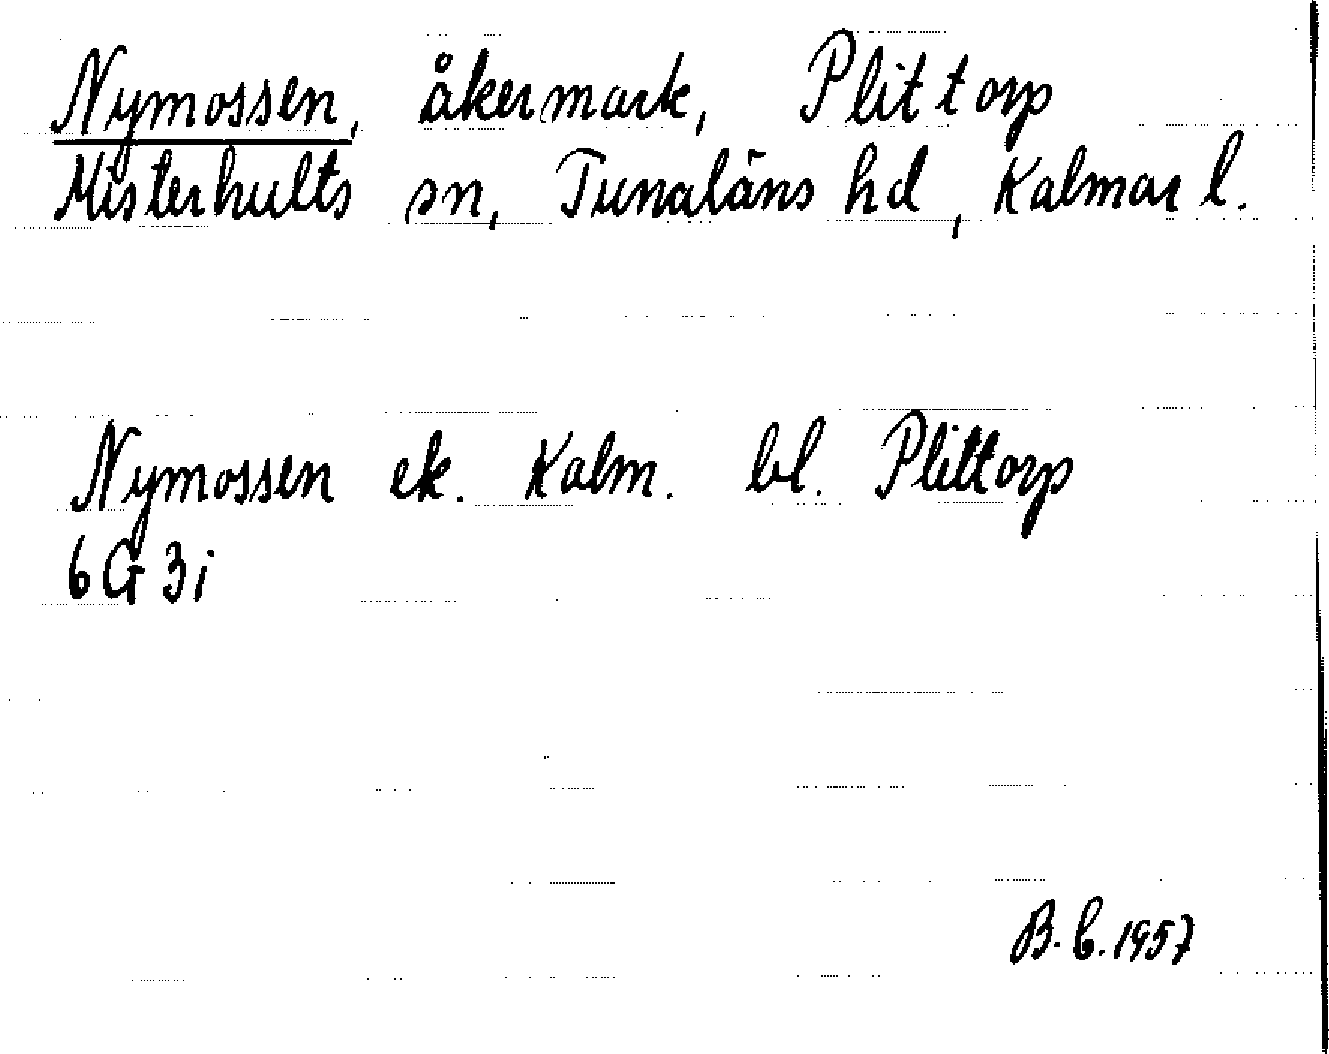 Nymossen, åkermark, Plittorp
Misterhults sn, Tunaläns hd, Kalmar l.
Nymossen ek. Kalm. bl. Plittorp
6G3i
B.C.1957